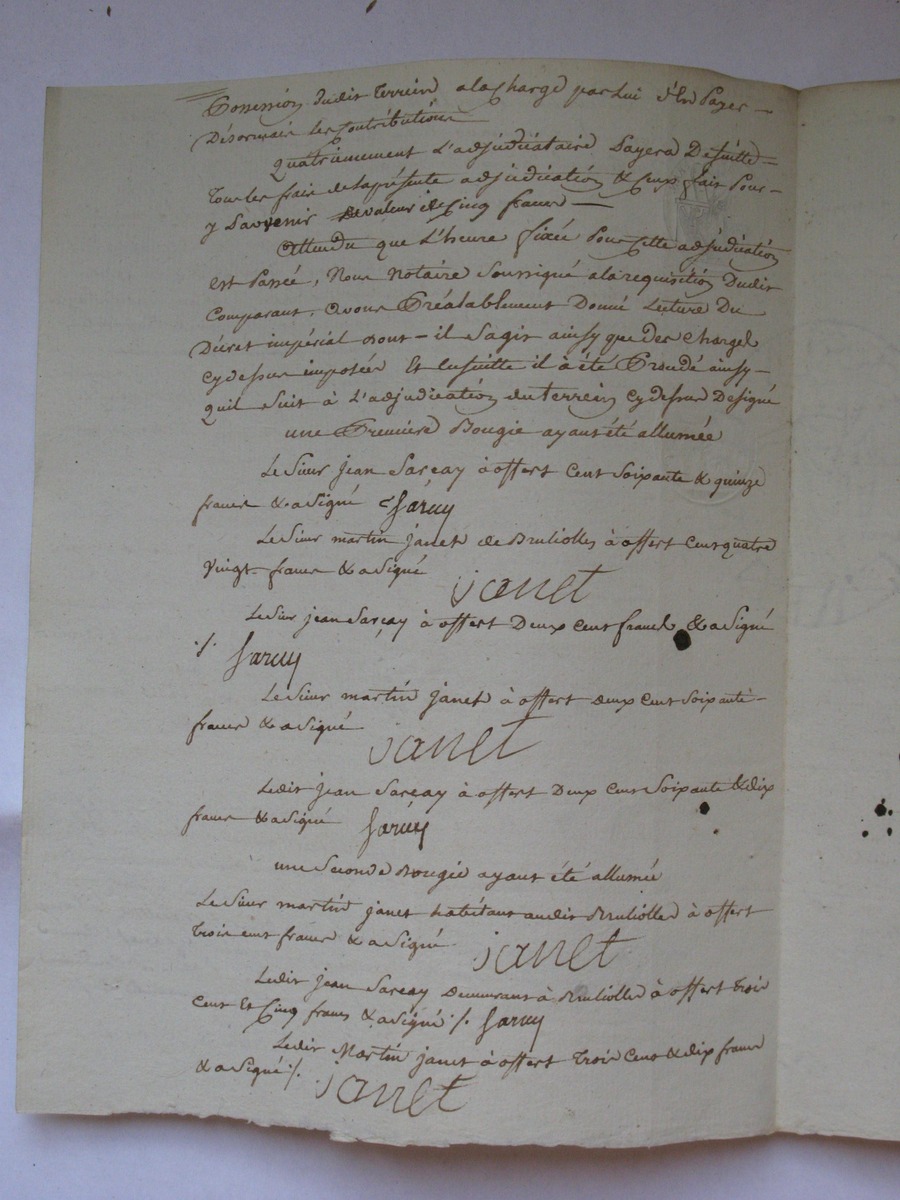 Possession dudit terrein a la charge par lui d'En Payer
Désormais Les Contributions
Quatriemement L'adjudicataire Payera De suitte
Tous les frais de la présente adjudication & ceux fait Pour
y Parvenir De valeur de Cinq francs
Attendu que L'heure fixée Pour cette adjudication
est Passée, Nous Notaire Soussigné a la requisition Dudit
Comparant, avons Préalablement Donné Lecture Du
Décret impérial dont il s'agit ainsy que des charges
cy dessus imposées Et Ensuitte il à été Procédé ainsy
qu'il suit à L'adjudication du terrein cy dessus Designé
une Premiere Bougie ayant été allumée
Le Sieur jean Sarcay à offert Cent soixante & quinze
francs & a signé Sarcay
Le Sieur martin janet de Bruliolles à offert Cent quatre
Vingt francs & a signé
janet
Le Sieur jean Sarcay à offert Deux cent francs & a signé
./. Sarcay
Le Sieur martin janet à offert deux cent soixante
francs & a signé
janet
Ledit jean Sarcay à offert Deux Cent Soixante & dix
francs & a signé Sarcay
une Seconde Bougie ayant été allumée
Le Sieur martin janet habitant audit Brulliolles à offert
Trois cent francs & a signé janet
Ledit jean Sarcay demeurant à Brulliolles à offert trois
cent Et Cinq francs & a signé ./. Sarcay
Ledit Martin janet à offert Trois Cent & dix francs
& a signé ./.
janet